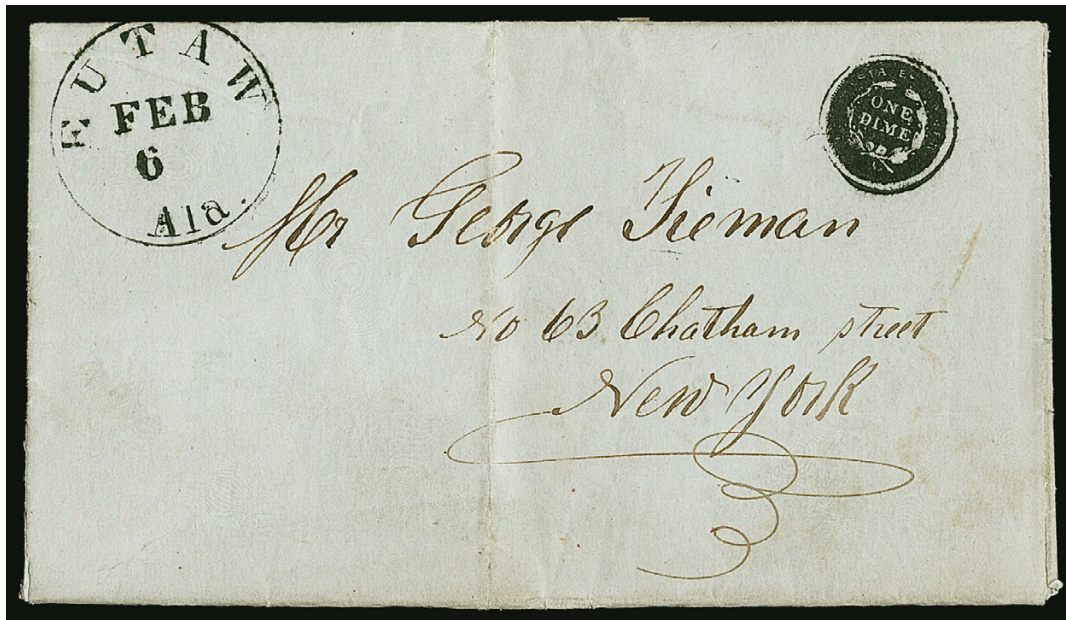 EUTAW
FEB
6
Ala.
ONE
DIME
Mr George Tieman
No 63 Chatham street
New York